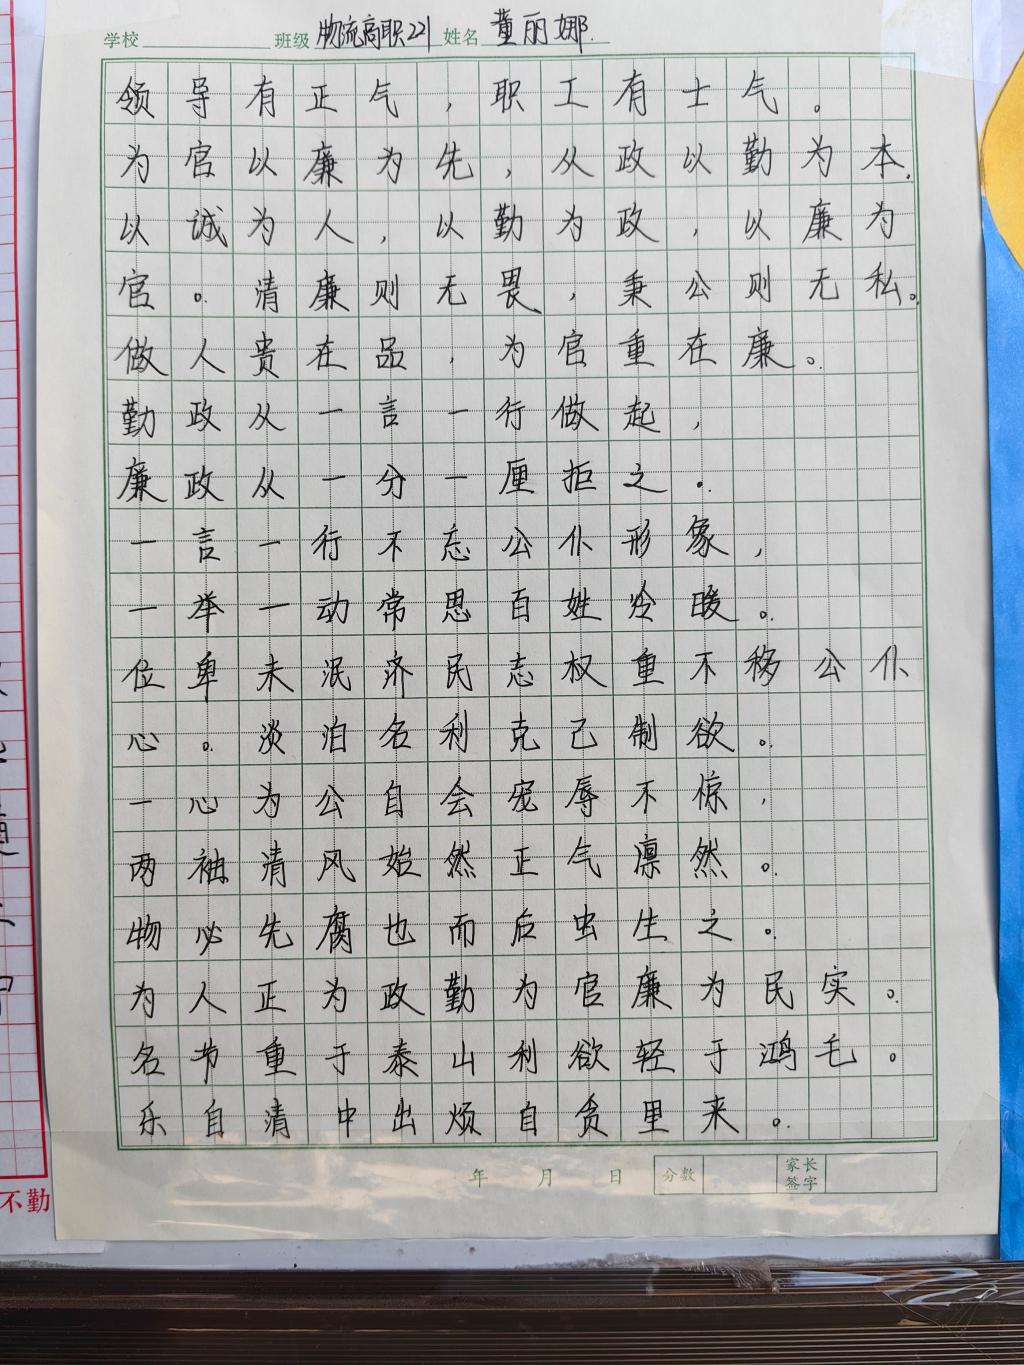 学校 班级 物流高职221 姓名 董丽娜
领导有正气，职工有士气。
为官以廉为先，从政以勤为本.
以诚为人，以勤为政，以廉为
官。清廉则无畏，秉公则无私。
做人贵在品，为官重在廉。
勤政从一言一行做起，
廉政从一分一厘拒之。
一言一行不忘公仆形象，
一举一动常思百姓冷暖。
位卑未泯济民志权重不移公仆
心。淡泊名利克己制欲。
一心为公自会宠辱不惊，
两袖清风始然正气凛然。
物必先腐也而后虫生之。
为人正为政勤为官廉为民实。
名节重于泰山利欲轻于鸿毛。
乐自清中出烦自贪里来。
年 月 日 分数 家长签字
不勤